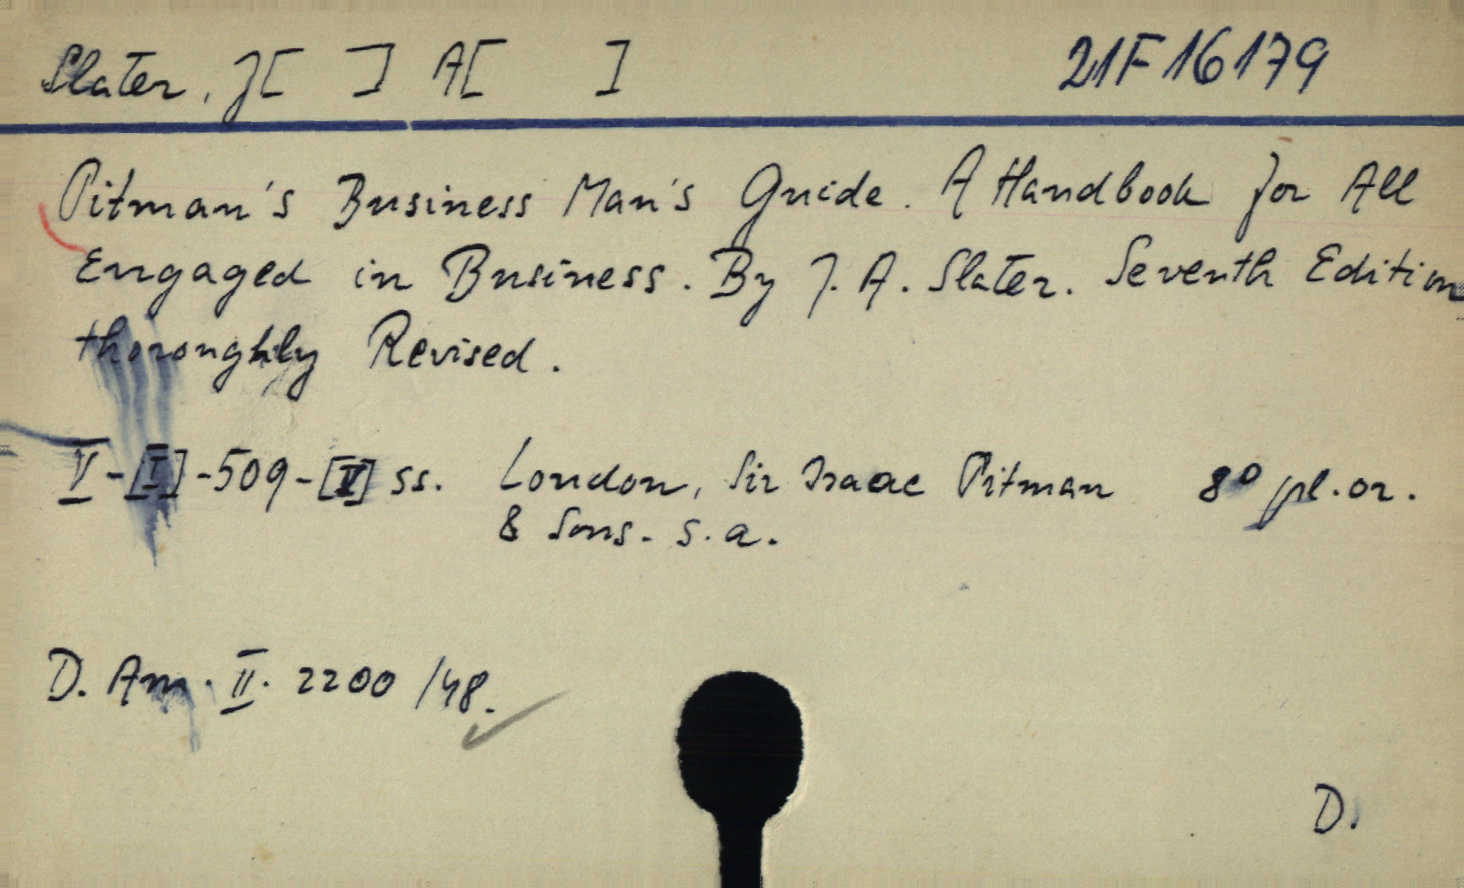 Slater, J[ ] A[ ] 21F16179
Pitman's Business Man's Guide. A Handbook for All
Engaged in Business. By J. A. Slater. Seventh Edition
thoroughly Revised.
V-[I]-509-[V] ss. London, Sir Isaac Pitman 8° pl.or.
& Sons. s.a.
D. Am. II. 2200/48.
D.